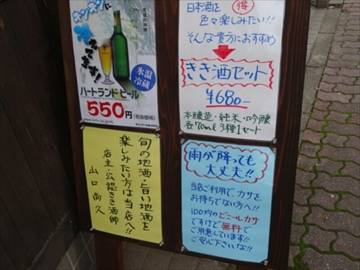 氷温
冷蔵
ハートランドビール
550円
日本酒を
得
色々楽しみたい!!
そんな貴方におすすめ
きき酒セット
¥680-
本醸造・純米・吟醸
各70ml 3種1セット
旬の地酒・旨い地酒を
楽しみたい方は当店へ!!
店主・公認きき酒師
山口尚久
雨が降っても
大丈夫!!
当店ご利用で、カサを
お持ちでない方へ!!
100円のビニールカサ
ですけど無料で
ご用意しています!!
ご安心下さいな!!